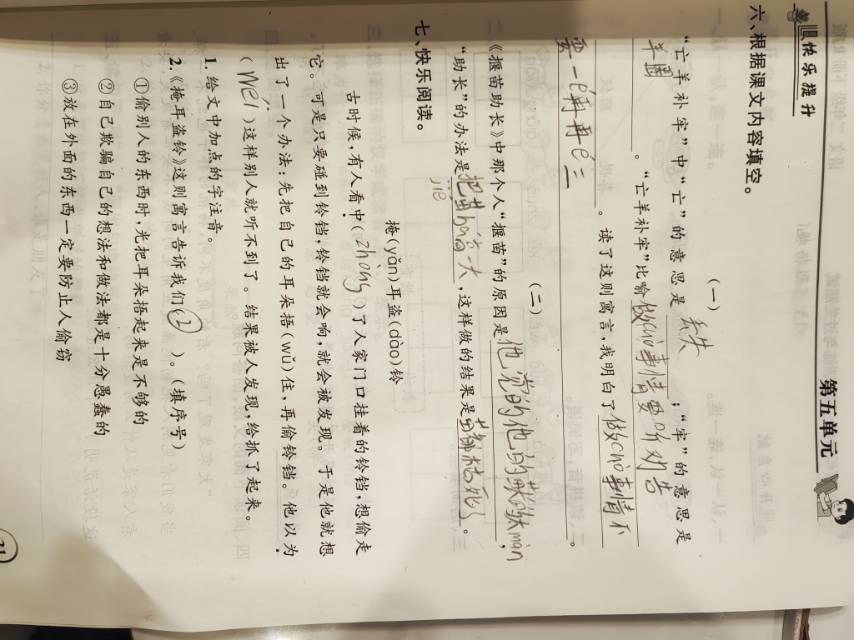 第五单元
快乐提升
六、根据课文内容填空。
(一)
“亡羊补牢”中“亡”的意思是丢失；“牢”的意思是
羊圈。“亡羊补牢”比喻做cuò事情要听劝告
。读了这则寓言,我明白了做cuò事情不
要一ér再再ér三。
(二)
《揠苗助长》中那个人“揠苗”的原因是他觉的他的秧的太màn,
“助长”的办法是把苗bá高一大jié,这样做的结果是苗都枯死了。
七、快乐阅读。
掩(yǎn)耳盗(dào)铃
古时候,有人看中(zhòng)了人家门口挂着的铃铛,想偷走
它。可是只要碰到铃铛,铃铛就会响,就会被发现。于是他就想
出了一个办法:先把自己的耳朵捂(wǔ)住,再偷铃铛。他以为
(wéi)这样别人就听不到了。结果被人发现,给抓了起来。
1.给文中加点的字注音。
2.《掩耳盗铃》这则寓言告诉我们(②)。(填序号)
①偷别人的东西时,光把耳朵捂起来是不够的
②自己欺骗自己的想法和做法都是十分愚蠢的
③放在外面的东西一定要防止人偷窃
21